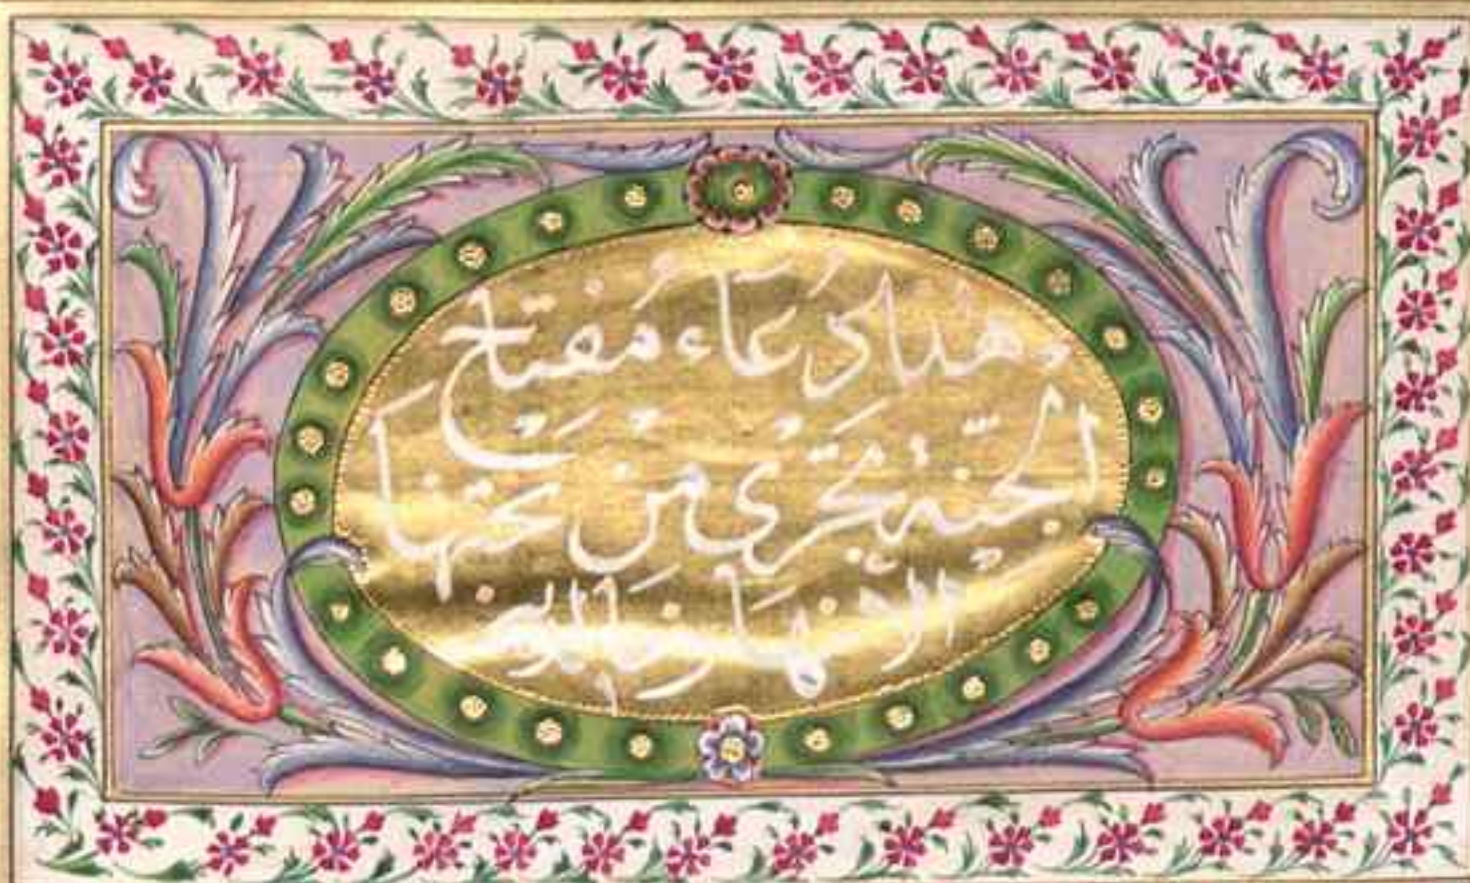 وهذا دُعَآء مُفتاح
الجنّة تَجْرَى مِنْ تَحتها
الانهار